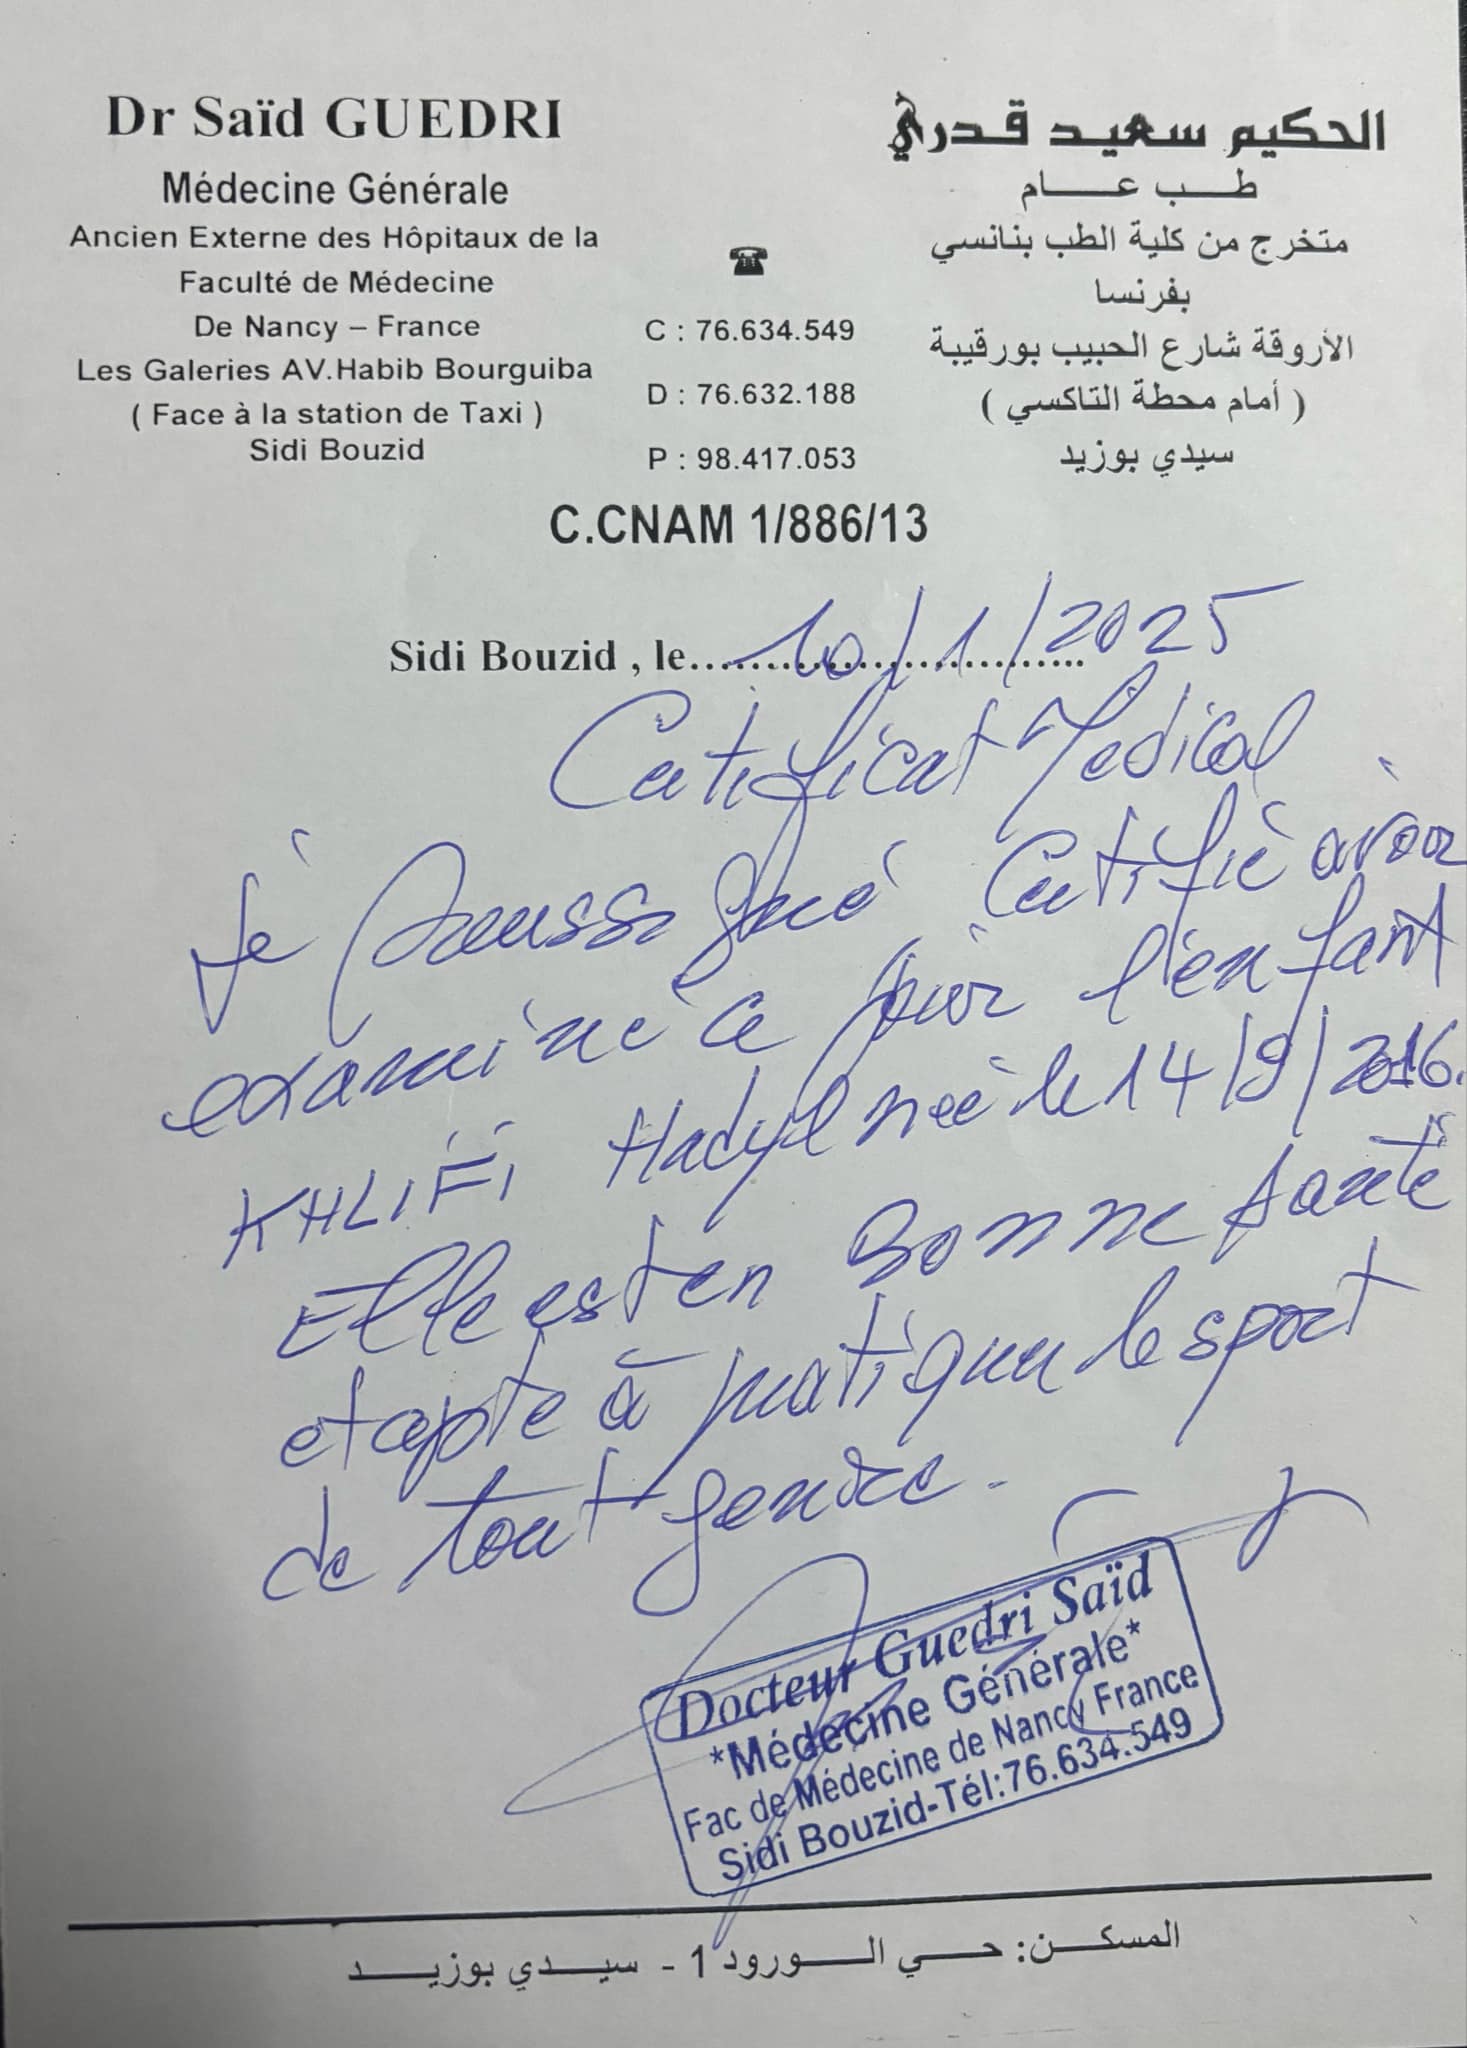 Dr Saïd GUEDRI
Médecine Générale
Ancien Externe des Hôpitaux de la
Faculté de Médecine
De Nancy – France
Les Galeries AV.Habib Bourguiba
( Face à la station de Taxi )
Sidi Bouzid
☎
C : 76.634.549
D : 76.632.188
P : 98.417.053
الحكيم سعيد قدري
طب عام
متخرج من كلية الطب بنانسي
بفرنسا
الأروقة شارع الحبيب بورقيبة
( أمام محطة التاكسي )
سيدي بوزيد
C.CNAM 1/886/13
Sidi Bouzid , le 10/1/2025
Certificat Médical
Je soussigné certifie avoir
examiné ce jour l'enfant
KHLIFI Hadyl née le 14/9/2016.
Elle est en Bonne santé
et apte à pratiquer le sport
de tout genre.
Docteur Guedri Saïd
*Médecine Générale*
Fac de Médecine de Nancy France
Sidi Bouzid-Tél:76.634.549
المسكن: حي الورود 1 - سيدي بوزيد